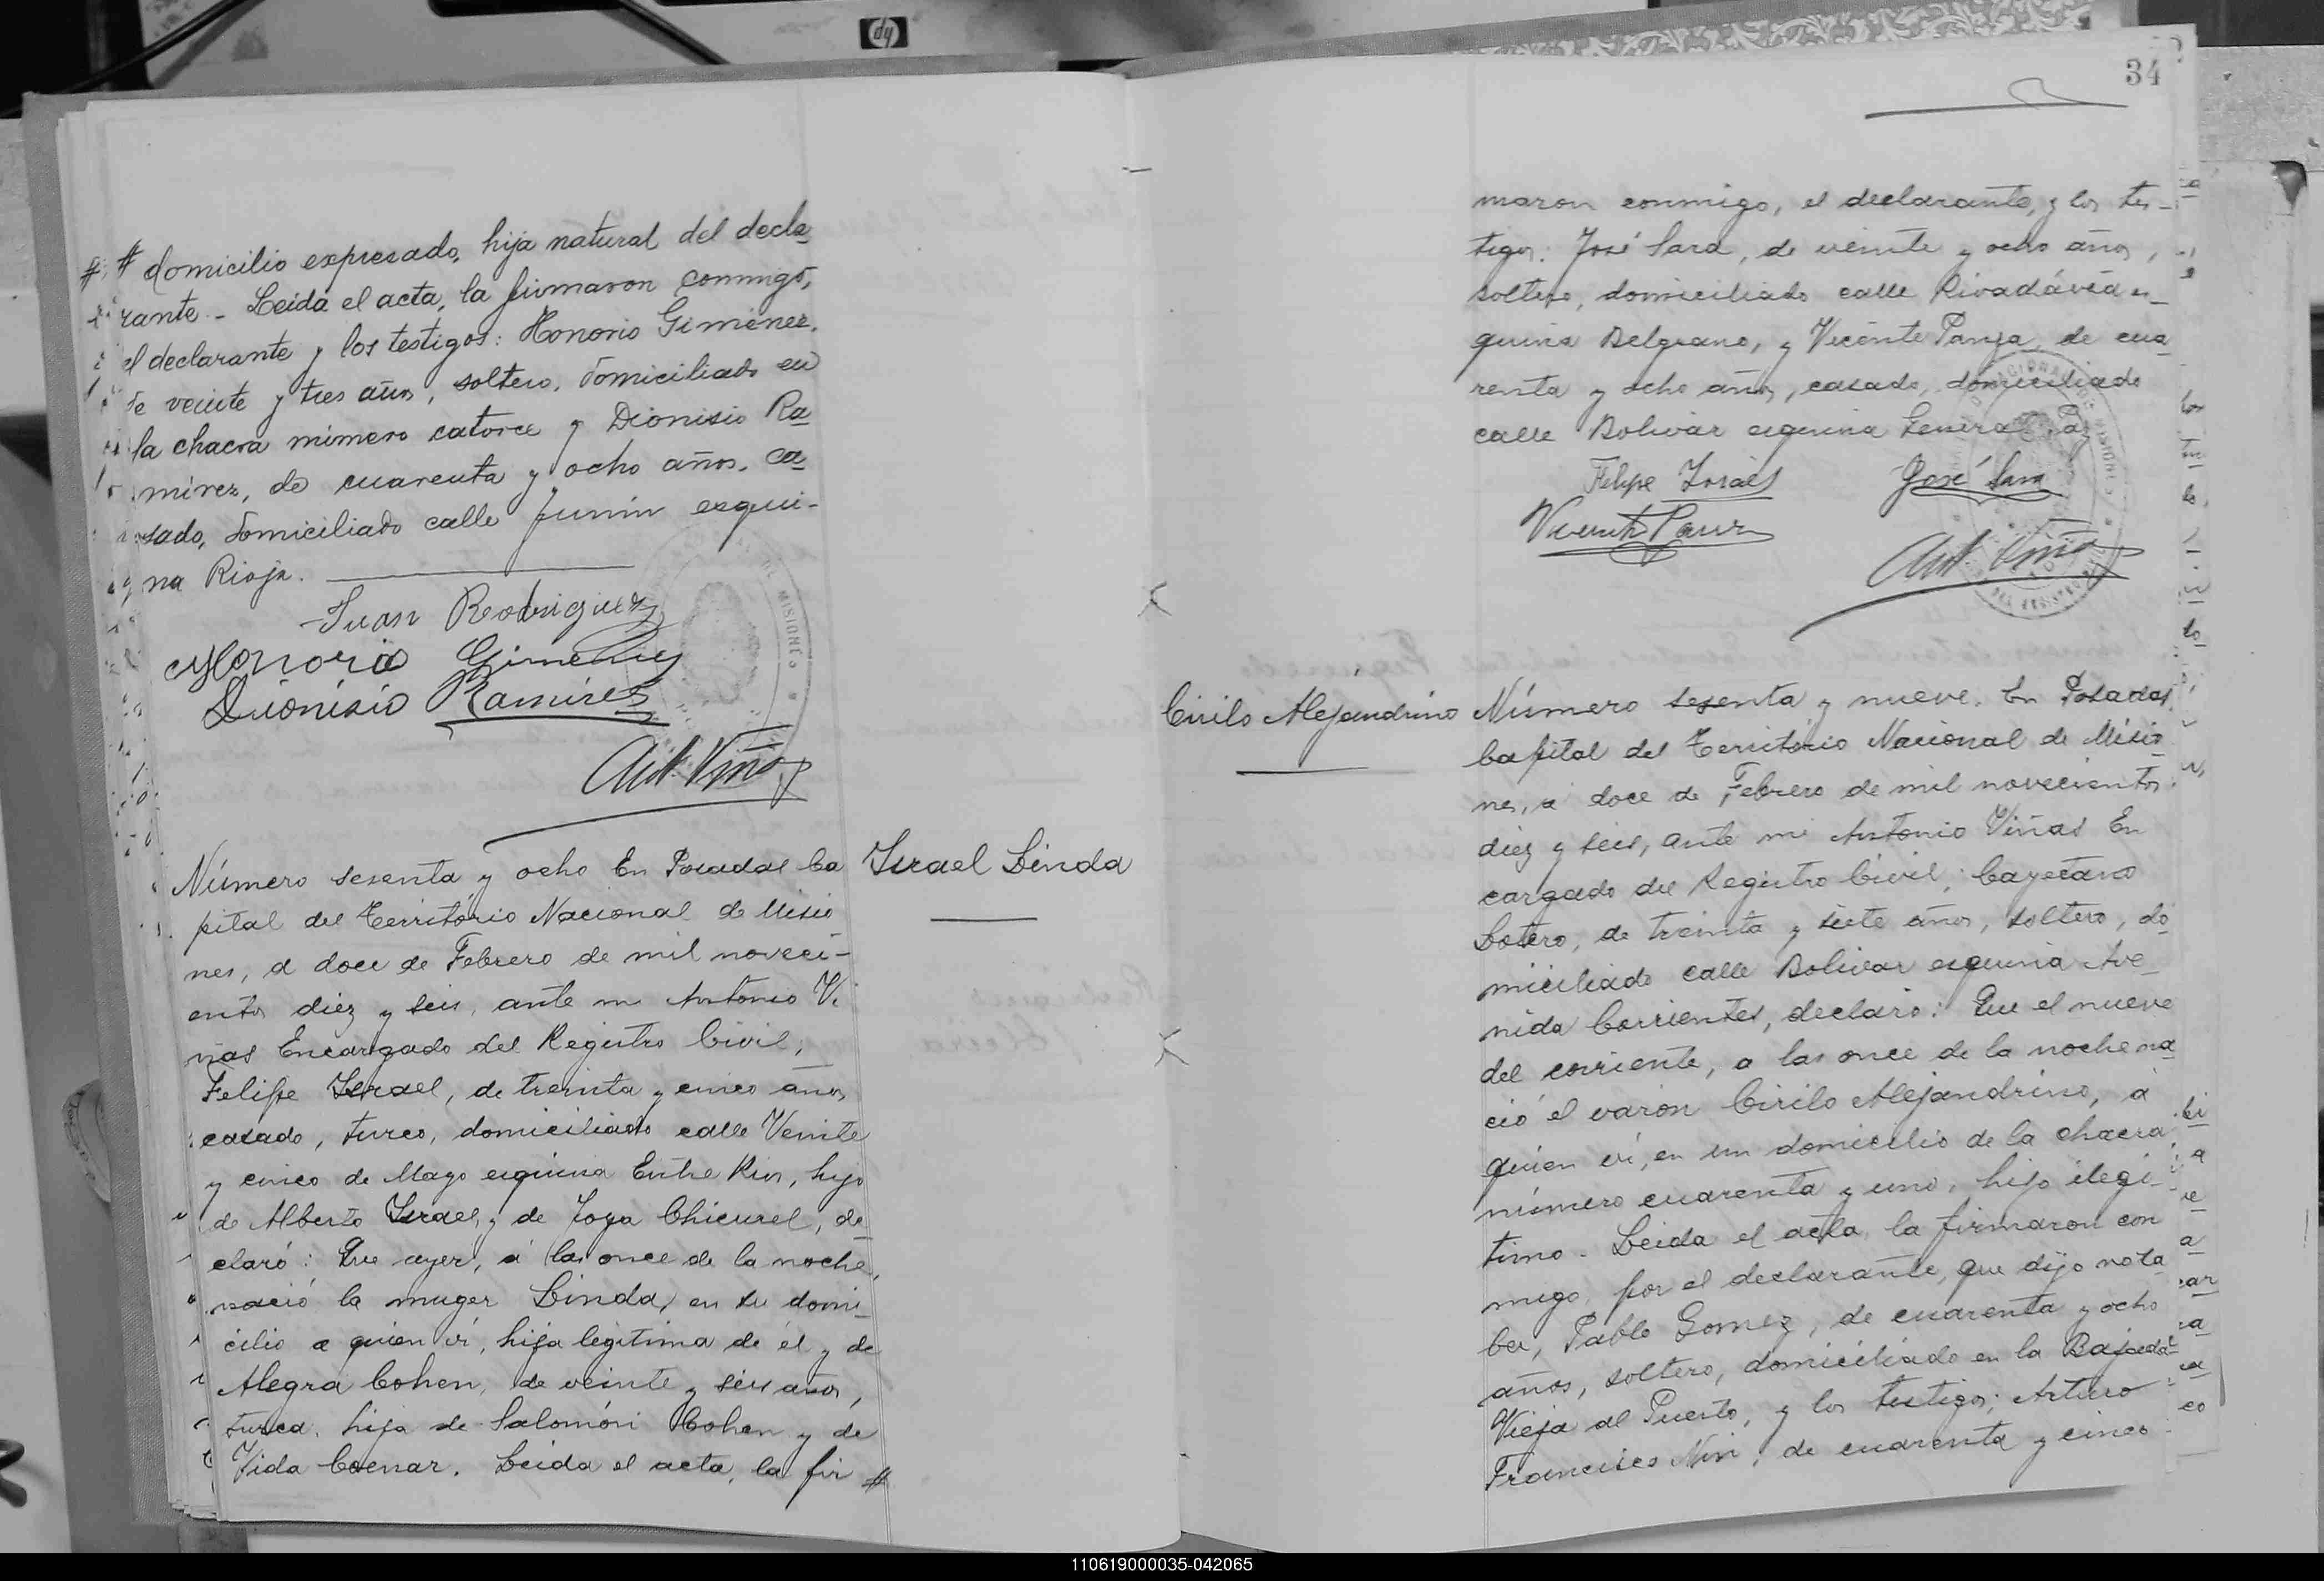 hp
# domicilio expresado, hija natural del decla
rante - Leida el acta, la firmaron conmigo,
el declarante y los testigos: Honorio Gimenez,
de veinte y tres años, soltero, domiciliado en
la chacra número catorce y Dionisio Ra
mirez, de cuarenta y ocho años, ca
sado, domiciliado calle Junin esqui-
na Rioja.
Juan Rodriguez
Honorio Gimenez
Dionisio Ramires
Ant. Viñas
Israel Linda
Número sesenta y ocho En Posadas Ca
pital del Territorio Nacional de Misio
nes, a doce de Febrero de mil noveci-
entos diez y seis, ante mi Antonio Vi
ñas Encargado del Registro Civil,
Felipe Israel, de treinta y cinco años
casado, turco, domiciliado calle Veinte
y cinco de Mayo esquina Entre Rios, hijo
de Alberto Israel y de Joya Chicurel, de
claró: Que ayer, á las once de la noche,
nació la muger Linda, en su domi
cilio a quien ví, hija legitima de él y de
Alegra Cohen, de veinte y seis años,
turca, hija de Salomón Cohen y de
Vida Coenar. Leida el acta, la fir #
34
maron conmigo, el declarante, y los tes-
tigos: José Sara, de veinte y ocho años,
soltero, domiciliado calle Rivadávia es-
quina Belgrano, y Vicente Panza, de cua
renta y ocho años, casado, domiciliado
calle Bolivar esquina General Paz
Felipe Israel José Sara
Ant. Viñas
Cirilo Alejandrino
Número sesenta y nueve. En Posadas
Capital del Territorio Nacional de Misio
nes, a doce de Febrero de mil novecientos
diez y seis, ante mi Antonio Viñas En
cargado del Registro Civil, Cayetano
Botero, de treinta y siete años, soltero, do
miciliado calle Bolivar esquina Ave
nida Corrientes, declaró: Que el nueve
del corriente, a las once de la noche na
ció el varon Cirilo Alejandrino, á
quien ví, en un domicilio de la chacra
número cuarenta y uno, hijo ilegi-
timo. Leida el acta, la firmaron con
migo, por el declarante, que dijo no sa
ber, Pablo Gomez, de cuarenta y ocho
años, soltero, domiciliado en la Bajada
Vieja al Puerto, y los testigos: Arturo
Francisco Nin, de cuarenta y cinco
110619000035-042065